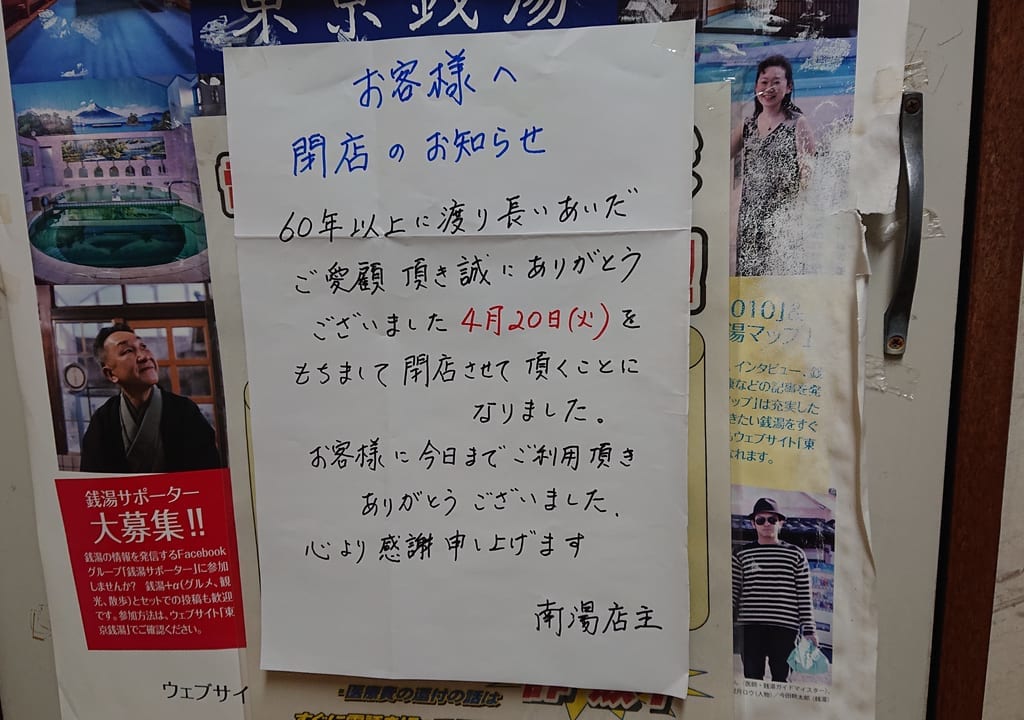 東京銭湯
お客様へ
閉店のお知らせ
60年以上に渡り長いあいだ
ご愛顧頂き誠にありがとう
ございました4月20日(火)を
もちまして閉店させて頂くことに
なりました。
お客様に今日までご利用頂き
ありがとうございました.
心より感謝申し上げます
南湯店主
銭湯サポーター
大募集!!
銭湯の情報を発信するFacebook
グループ「銭湯サポーター」に参加
しませんか? 銭湯+α(グルメ、観
光、散歩)とセットでの投稿も歓迎
です。参加方法は、ウェブサイト「東
京銭湯」でご確認ください。
ウェブサイ
010」&
湯マップ」
、インタビュー、銭
康などの記事を発
マップ」は充実した
きたい銭湯をすぐ
もウェブサイト「東
なれます。
医療費の還付の話は